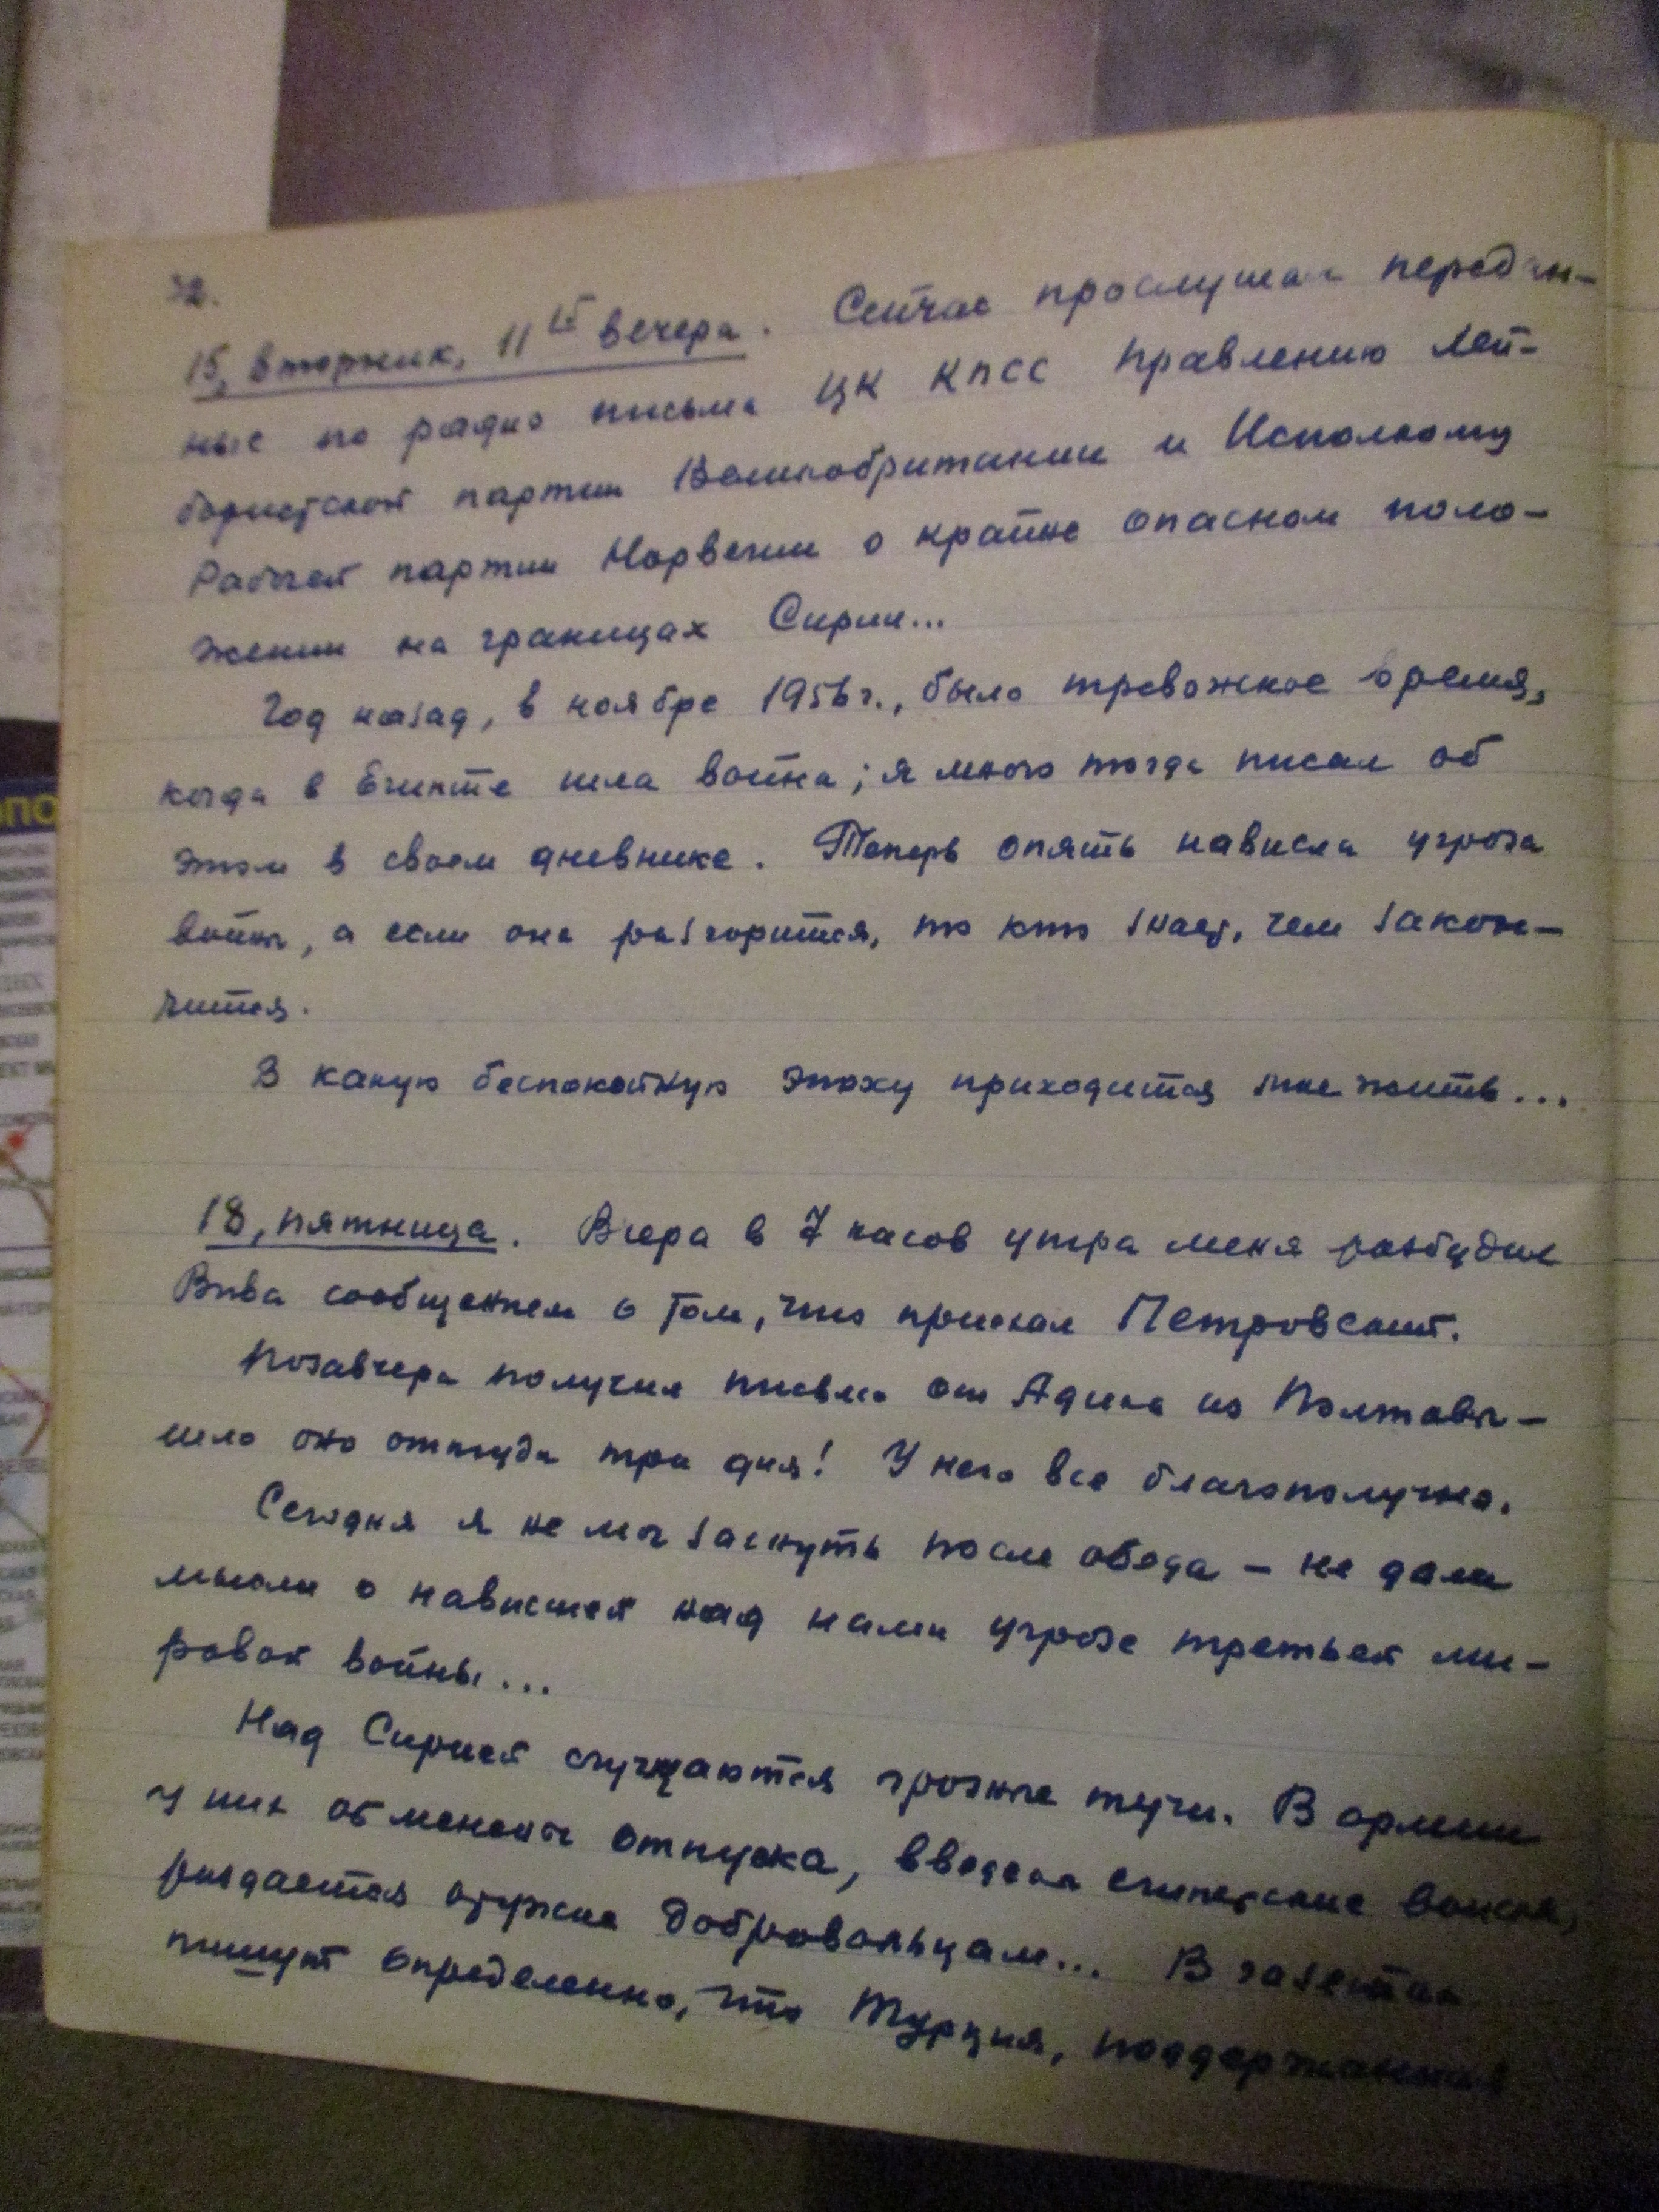 32.
15, вторник, 11 15 вечера. Сейчас прослушал передан-
ные по радио письма ЦК КПСС Правлению Лей-
бористской партии Великобритании и Исполкому
Рабочей партии Норвегии о крайне опасном поло-
жении на границах Сирии...
Год назад, в ноябре 1956 г., было тревожное время,
когда в Египте шла война; я много тогда писал об
этом в своем дневнике. Теперь опять нависла угроза
войны, а если она разгорится, то кто знает, чем закон-
чится.
В какую беспокойную эпоху приходится мне жить...
18, пятница. Вчера в 7 часов утра меня разбудил
Вива сообщением о том, что приехал Петровский.
Позавчера получил письмо от Адика из Полтавы -
шло оно оттуда три дня! У него все благополучно.
Сегодня я не мог заснуть после обеда - не дали
мысли о нависшей над нами угрозе третьей ми-
ровой войны...
Над Сирией сгущаются грозные тучи. В армии
у них отменены отпуска, введены египетские войска,
раздается оружие добровольцам... В газетах
пишут определенно, что Турция, поддержанная